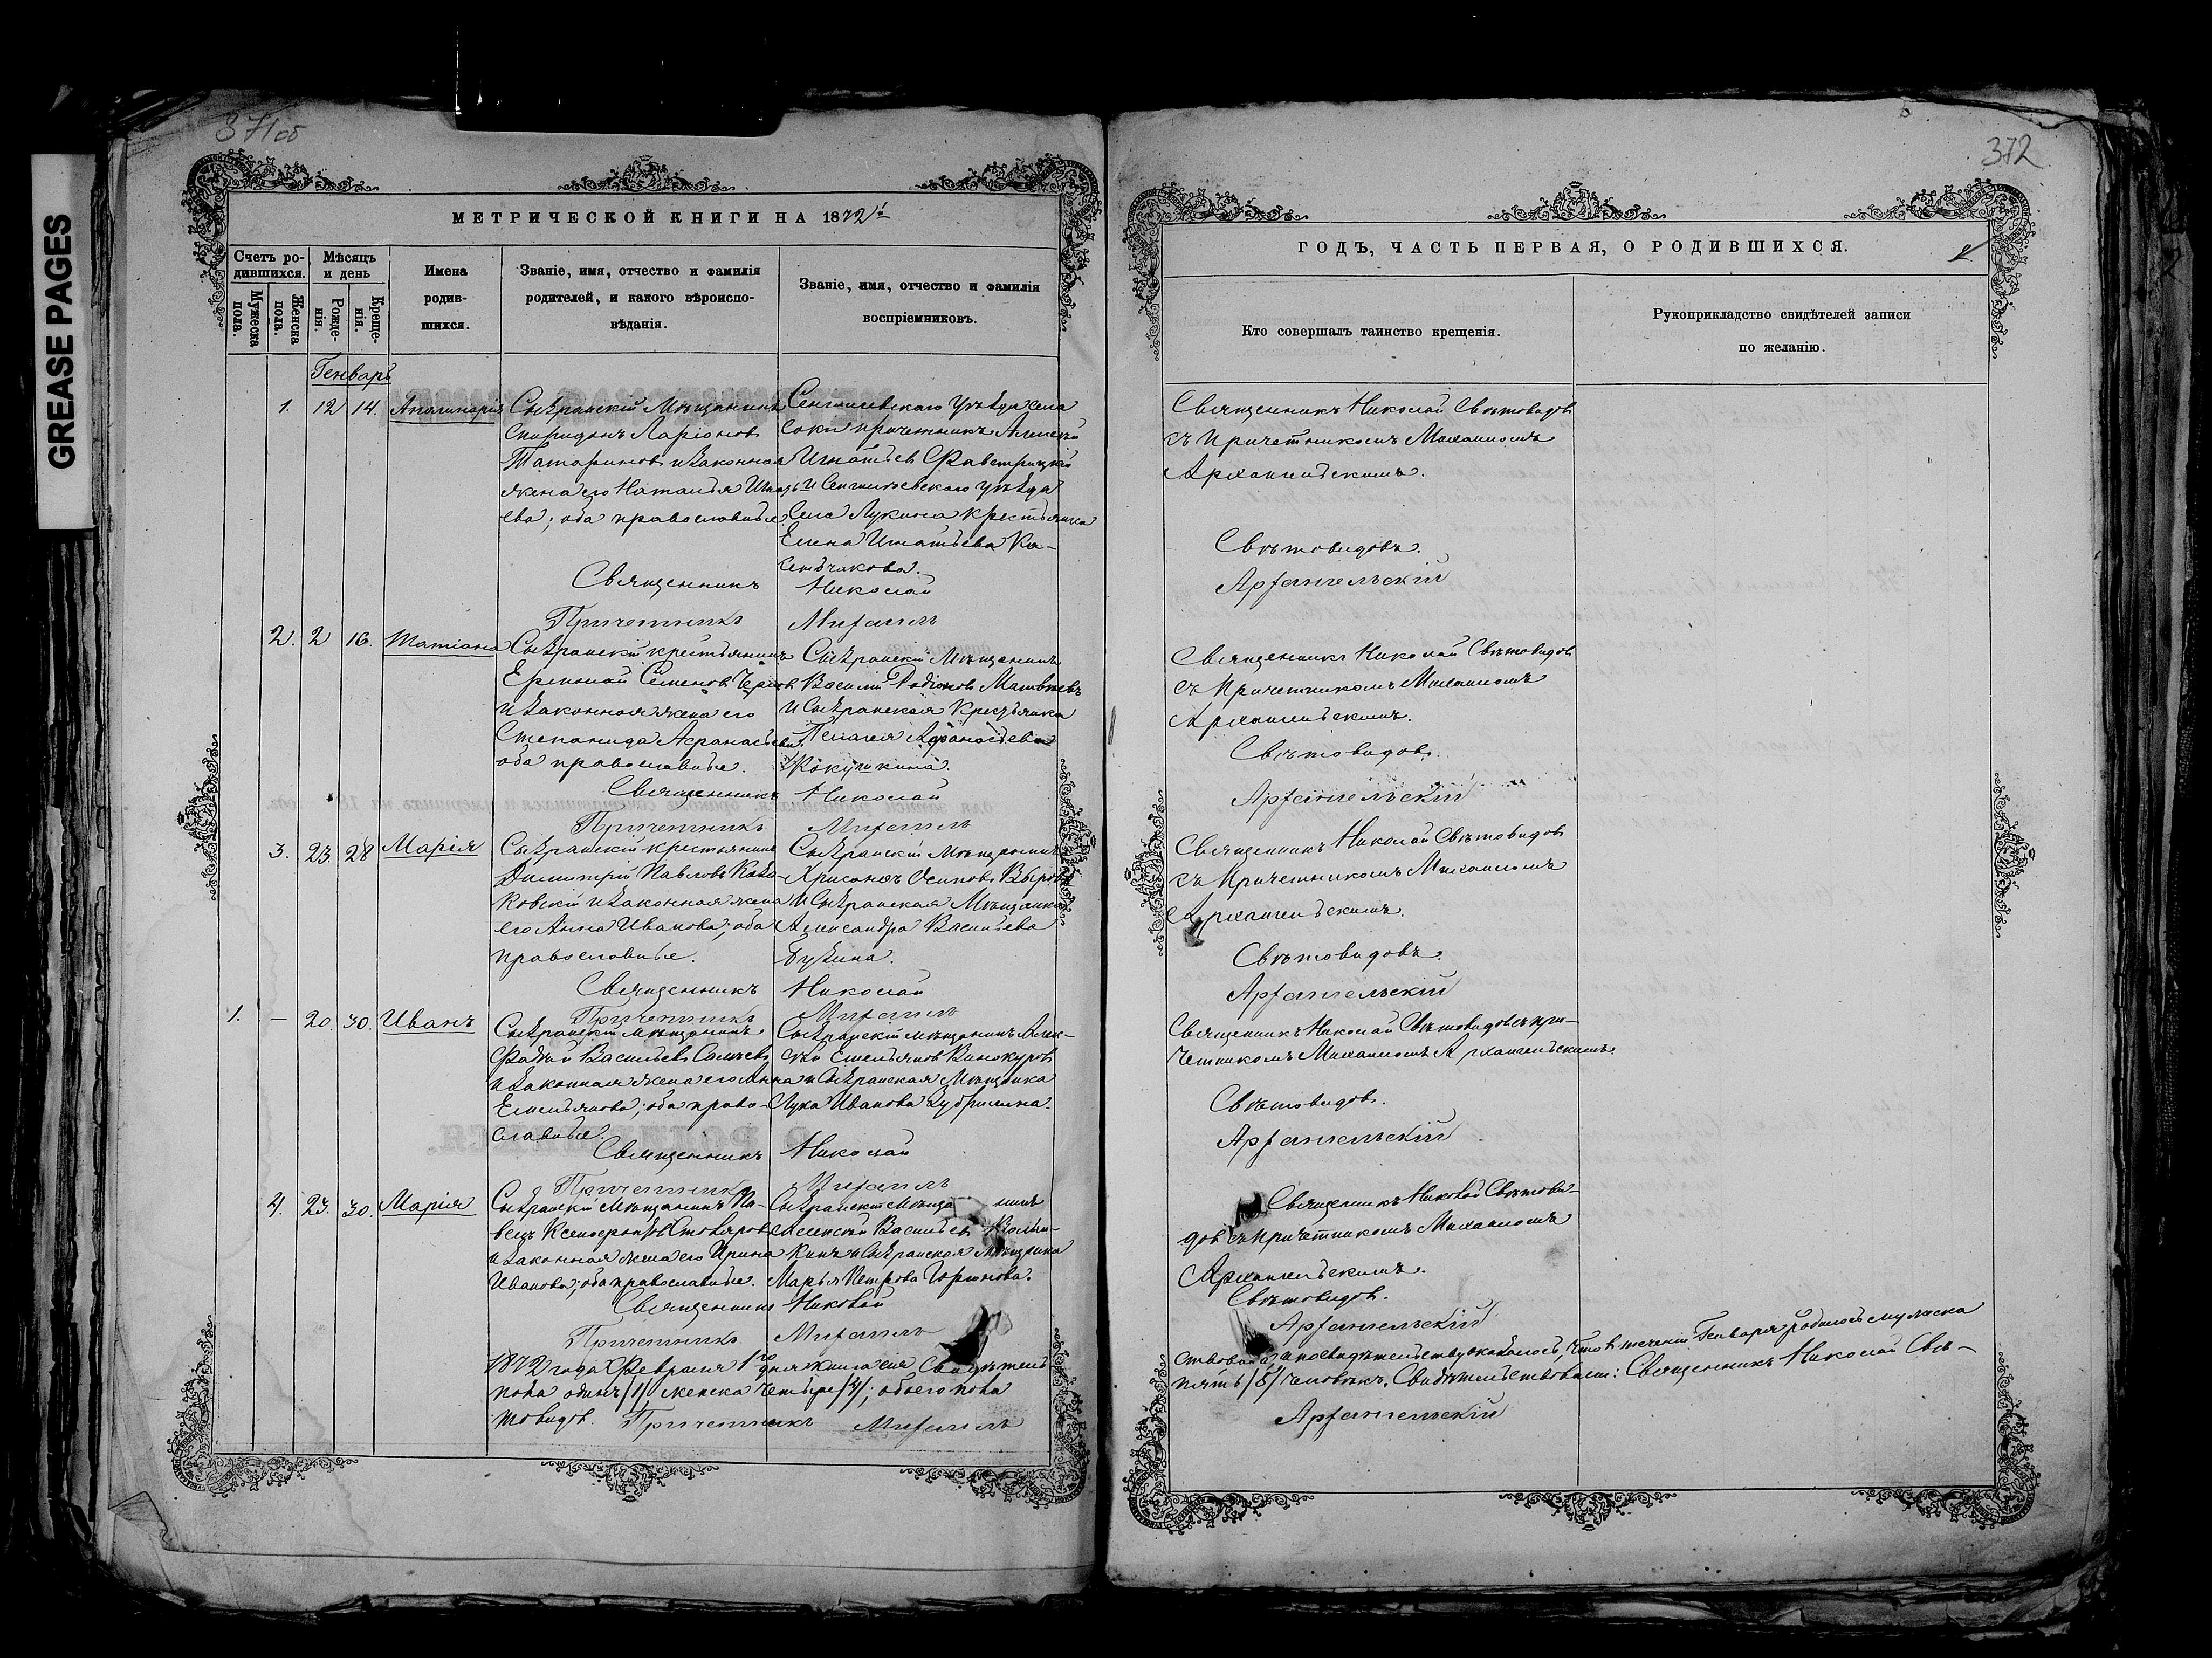 GREASE PAGES
371об
МЕТРИЧЕСКОЙ КНИГИ НА 1872й
Счетъ родившихся.
Мужеска пола.
Женска пола.
Мѣсяцъ и день
Рожденія.
Крещенія.
Имена родившихся.
Званіе, имя, отчество и фамилія родителей, и какого вѣроисповѣданія.
Званіе, имя, отчество и фамилія воспріемниковъ.
Генварь
1. 12 14. Апполинарія
Сызранскій Мѣщанинъ
Спиридонъ Ларіоновъ
Татариновъ и законная
жена его Наталья Игнать
ева; оба православные
Сенгилеевскаго Уѣзда села
Соки причетникъ Алексѣй
Игнатьев
и Сенгилеевскаго уѣзда
Села Лукина крестьянка
Елена Игнатьева Ка-
Священникъ Николай
Причетникъ Михаилъ
2. 2 16. Татіана
Сызранскій крестьянинъ
Ермолай Семеновъ
и законная жена его
Степанида Афанасьева
оба православные.
Сызранскій Мѣщанинъ
Василій Родіоновъ Матвѣевъ
и Сызранская Крестьянка
Пелагея Афанасьева
Кокушкина.
Священникъ Николай
Причетникъ Михаилъ
3. 23. 28 Марія
Сызранскій крестьянинъ
Димитрій Павловъ Каза-
ковскій и законная жена
его Анна Иванова; оба
православные.
Сызранскій Мѣщанинъ
Хрисанфъ Осиповъ Выровъ
и Сызранская Мѣщанка
Александра Васильева
Бузина.
Священникъ Николай
Причетникъ Михаилъ
1. – 20. 30. Иванъ
Сызранскій Мѣщанинъ
Фадѣй Васильевъ
и законная жена его Анна
Емельянова; оба право-
славные.
Сызранскій мѣщанинъ Алек-
сѣй Емельяновъ Винокуровъ
и Сызранская Мѣщанка
Иванова
Священникъ Николай
Причетникъ Михаилъ
4. 23. 30. Марія
Сызранскій Мѣщанинъ Па-
велъ Ксенофонтовъ Столяровъ
и законная жена его Ирина
Иванова; оба православные.
Сызранскій Мѣща нинъ
Алексѣй Васильевъ
кинъ и Сызранская Мѣщанка
Марья Петрова Горюнова.
Священникъ Николай
Причетникъ Михаилъ
1872 года Февраля 1го дня книга сія Свидѣтель
пола одинъ /1/ женска четыре /4/; обоего пола
товидов. Причетникъ Михаилъ
372
ГОДЪ, ЧАСТЬ ПЕРВАЯ, О РОДИВШИХСЯ.
Кто совершалъ таинство крещенія.
Рукоприкладство свидѣтелей записи
по желанію.
Священникъ Николай Свѣтовидов
съ Причетникомъ Михаиломъ
Архангельскимъ.
Свѣтовидовъ.
Архангельскій
Священникъ Николай Свѣтовидов
съ Причетникомъ Михаиломъ
Архангельскимъ.
Свѣтовидов.
Архангельскій
Священникъ Николай Свѣтовидов
съ Причетникомъ Михаиломъ
Архангельскимъ.
Свѣтовидовъ.
Архангельскій
Священникъ Николай Свѣтовидов съ при-
четникомъ Михаиломъ Архангельскимъ.
Свѣтовидов.
Архангельскій
Священникъ Николай Свѣтови-
дов съ причетникомъ Михаиломъ
Архангельскимъ.
Свѣтовидов.
Архангельскій
ствована, а по свидѣтельству оказалось, что в теченіи Генваря родилось мужеска
пять /5/ человѣкъ. Свидѣтельствовали: Священникъ Николай Свѣ-
Архангельскій